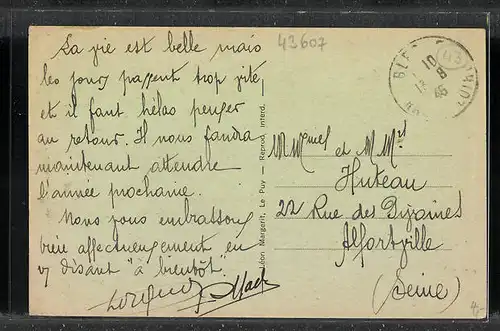 La vie est belle mais
les jours passent trop vite,
et il faut hélas penser
au retour. Il nous faudra
maintenant attendre
l'année prochaine.
Nous vous embrassons
bien affectueusement en
vs disant "à bientôt".
43607
Léon Margerit, Le Puy — Reprod. interd.
10
8
et M.
Huteau
22 Rue des Dizaines
Alfortville
(Seine)